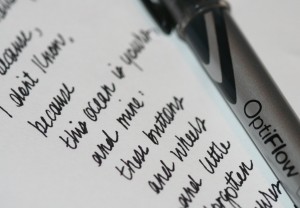 because,
I don't know,
because
this ocean is yours,
and mine:
these buttons
and wheels
and little
forgotten
OptiFlow